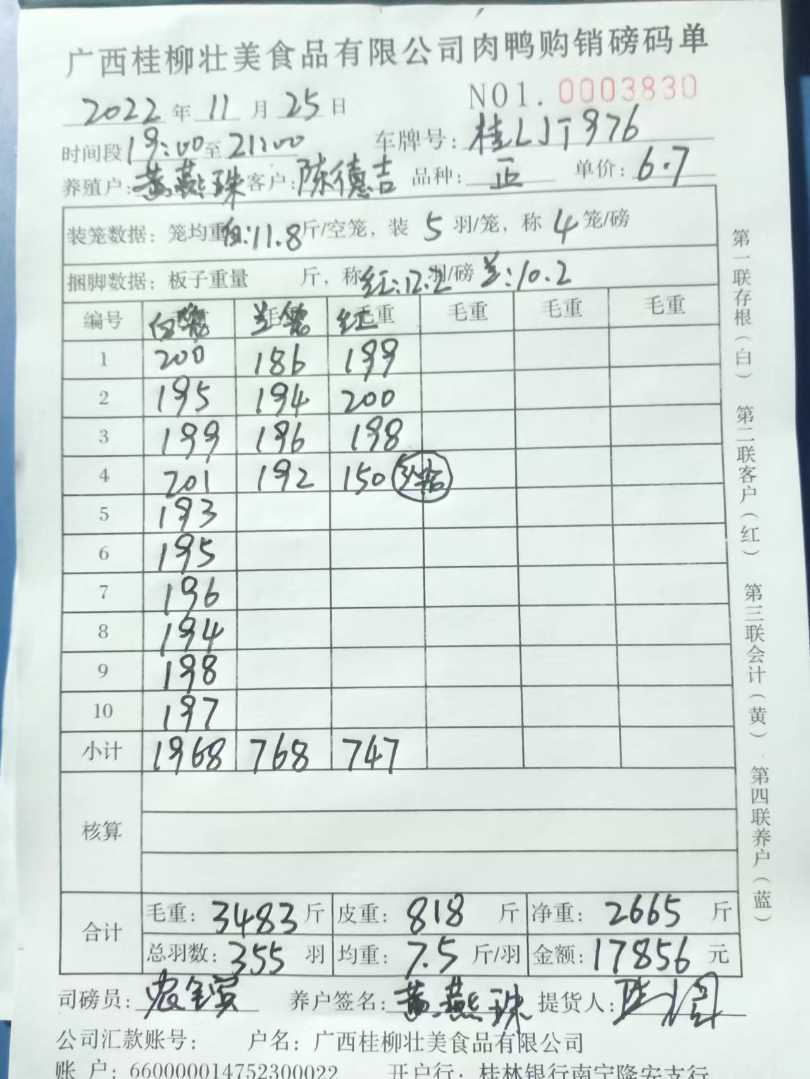 广西桂柳壮美食品有限公司肉鸭购销磅码单
2022 年 11 月 25 日 NO1. 0003830
时间段 19:00 至 21:00 车牌号: 桂LJT976
养殖户: 黄燕珠 客户: 陈德吉 品种: 正 单价: 6.7
装笼数据: 笼均重 白:11.8 斤/空笼, 装 5 羽/笼, 称 4 笼/磅
捆脚数据: 板子重量 斤, 称 红:12.2 羽/磅 兰:10.2
编号 白 毛重 兰 毛重 红 毛重 毛重 毛重 毛重
1 200 186 199
2 195 194 200
3 199 196 198
4 201 192 150
5 193
6 195
7 196
8 194
9 198
10 197
小计 1968 768 747
核算
合计 毛重: 3483 斤 皮重: 818 斤 净重: 2665 斤
总羽数: 355 羽 均重: 7.5 斤/羽 金额: 17856 元
司磅员: 养户签名: 黄燕珠 提货人:
公司汇款账号: 户名: 广西桂柳壮美食品有限公司
账 户: 660000014752300022 开户行: 桂林银行南宁隆安支行
第一联存根(白) 第二联客户(红) 第三联会计(黄) 第四联养户(蓝)